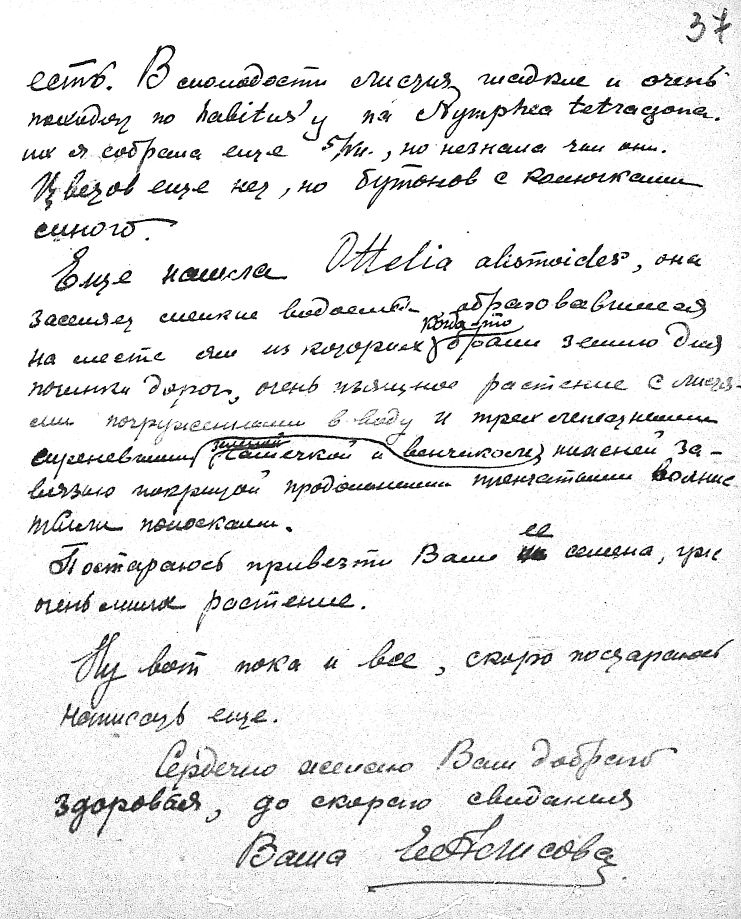 37
есть. В смолодости листья гладкие и очень
походят по habitus'у на Nymphea tetragona.
их я собрала еще 5/VII., но не знала чьи они.
Цветов еще нет, но бутонов с колючками
много.
Еще нашла Ottelia alismoides, она
заселяет мелкие водоемы образовавшиеся
когда-то
на месте ям из которых брали землю для
починки дорог, очень изящное растение с листья-
ми погруженными в воду и трех лепестными
зеленой
сиреневыми чашечкой и венчиком, нижней за-
вязью покрытой продольными пленчатыми волнис
тыми полосками.
ее
Постараюсь привезти Вам семена, уж
очень милое растение.
Ну вот пока и все, скоро постараюсь
написать еще.
Сердечно желаю Вам доброго
здоровья, до скорого свидания
Ваша